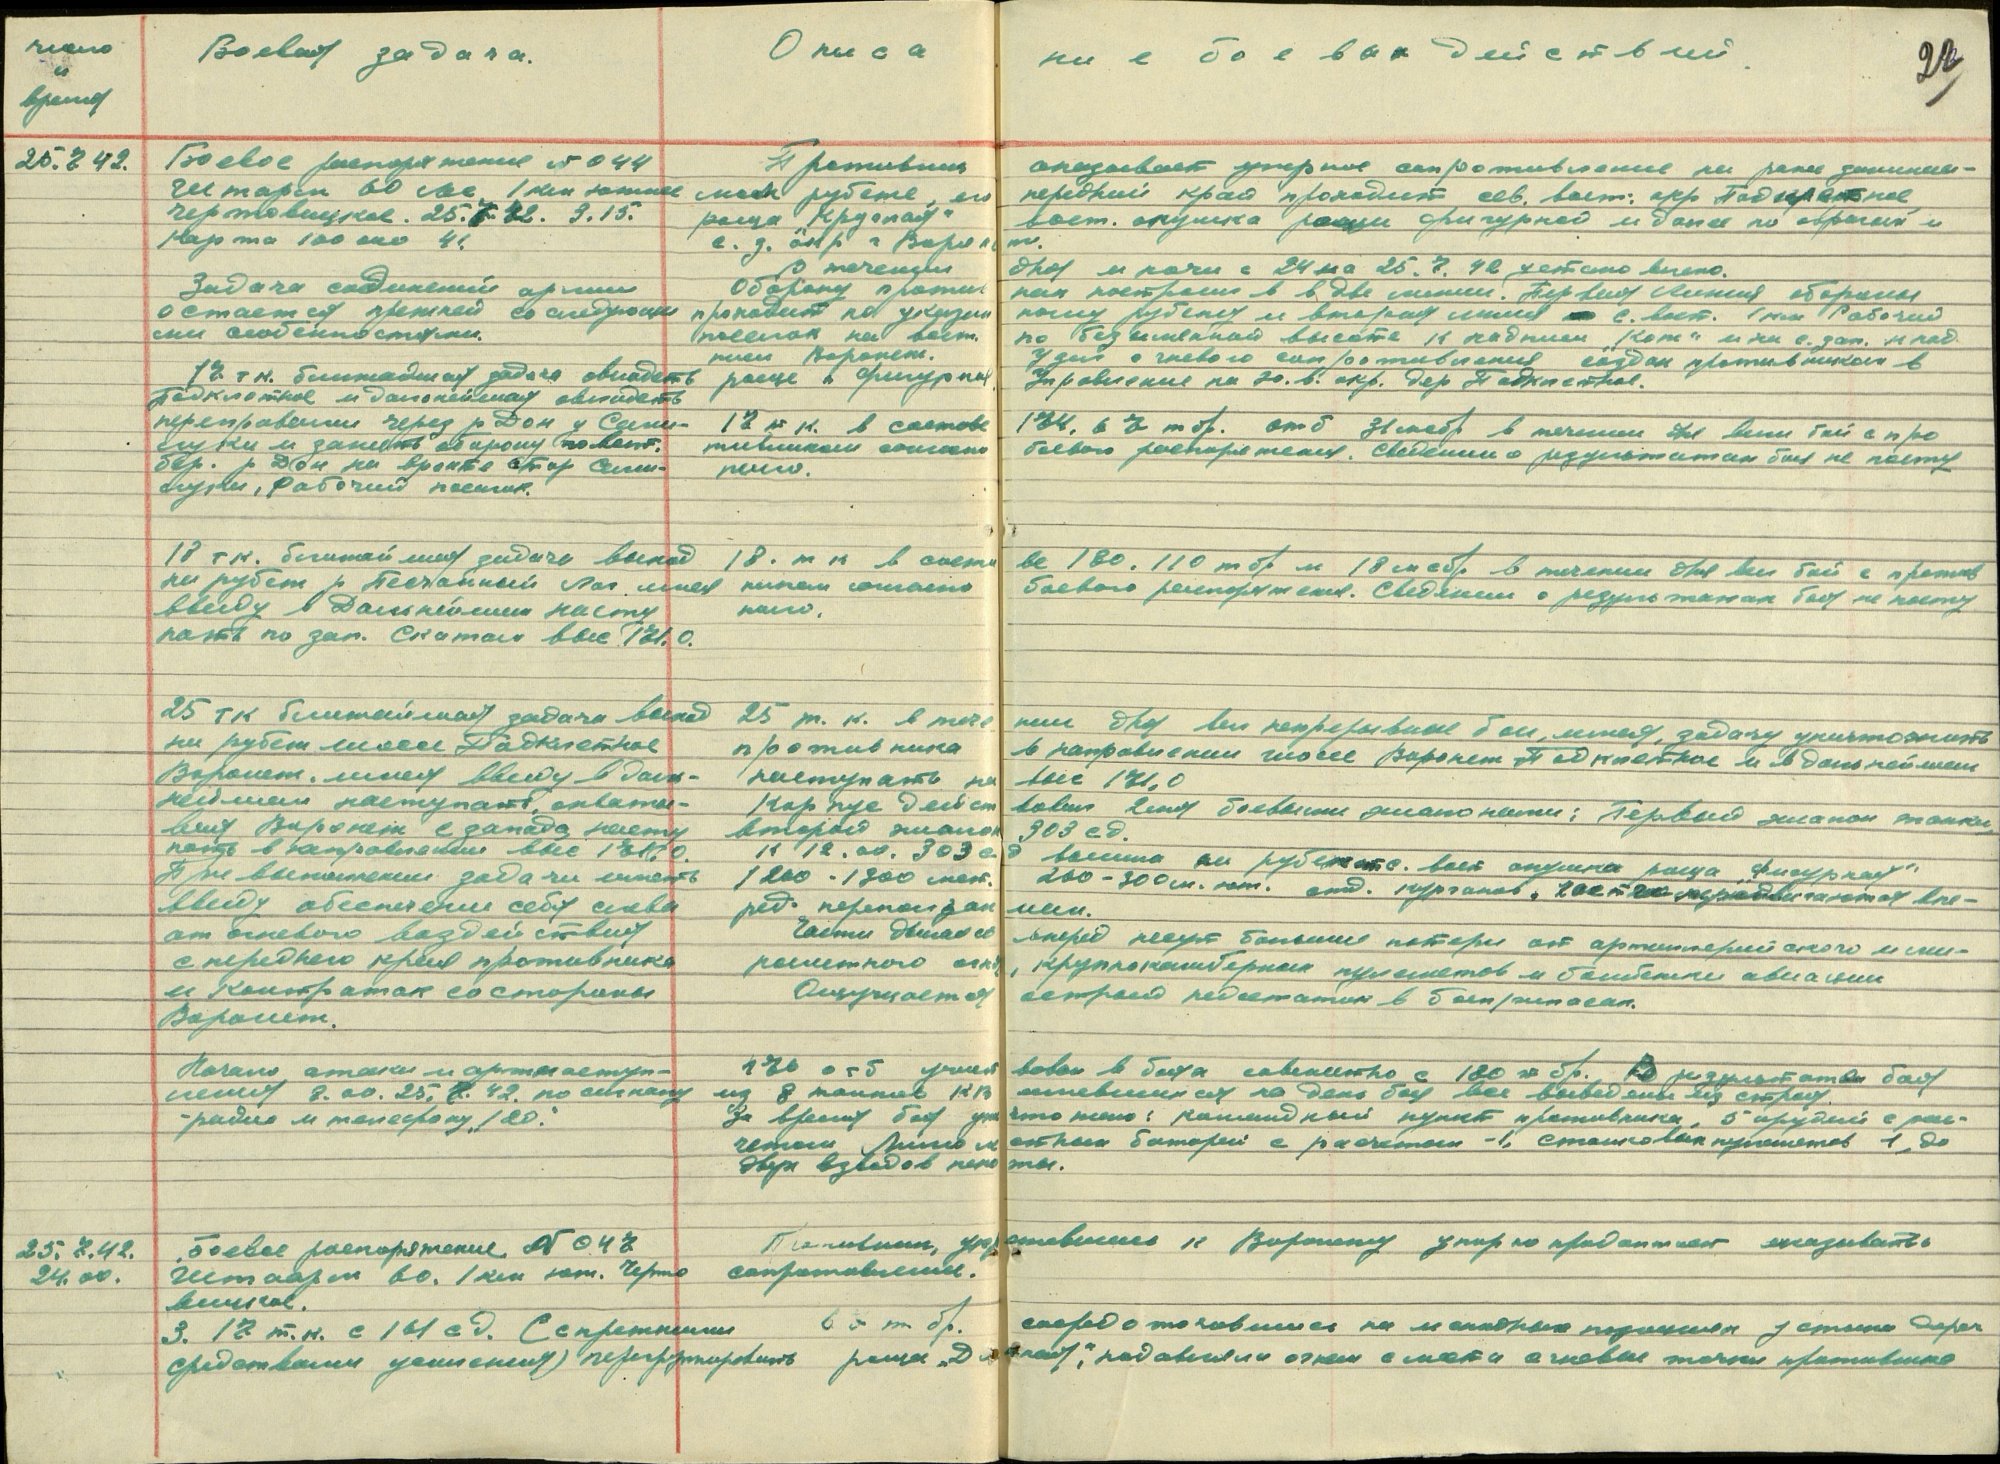 число
и
время
Боевая задача.
Описа
ние боевых действий.
22
25.7.42.
Боевое распоряжение № 044
Штарм 60 лес, 1 км южнее
Чертовицкое. 25.7.42. 3.15.
Карта 100 000 41.
Задача соединений армии
остается прежней со следующи
ми особенностями.
17 т.к. ближайшая задача овладеть
Подклетное и дальнейшая овладеть
переправами через р Дон у Семи-
луки и занять оборону по вост.
бер. р Дон на фронте стор Семи-
луки, Рабочий поселок.
18 т к. ближайшая задача выход
на рубеж р Песчанный Лог имея
ввиду в дальнейшем насту
пать по зап. Скатам выс 171.0.
25 т к ближайшая задача выход
на рубеж шоссе Подклетное
Воронеж. имея ввиду в даль-
нейшем наступать, охваты-
вая Воронеж с запада насту
пать в направлении выс 171.0.
При выполнении задачи иметь
ввиду обеспечение себя слева
от огневого воздействия
с переднего края противника
и контратак со стороны
Воронеж.
Начало атаки и артнаступ-
ления 7.00. 25.7.42. по сигналу
радио и телефону
Противник оказывает упорное сопротивление на ранее занимае-
мом рубеже, его передний край проходит сев. вост. окр Подклетное
роща Круглая" вост. опушка рощи фигурной и далее по оврагам и
с. з. окр г Воронеж.
В течении дня и ночи с 24 на 25.7.42
Оборону противник построил в две линии. Первая линия обороны
проходит по указанному рубежу и вторая линия с. вост. 1 км Рабочий
поселок на вост. по безымянной высоте к надписи и на с. зап.
писи Воронеж. Узел огневого сопротивления создан противником в
роще "Фигурная" Управление на ю. в. окр. дер Подклетное.
17 т к. в составе 174, 67 тбр. отб 31 мсбр в течении дня вели бой с про
тивником согласно боевого распоряжения. Сведений о результатах боя не посту
пило.
18. т к в составе 180. 110 т бр и 18 мсбр в течении дня вел бой с против
ником согласно боевого распоряжения. Сведении о результатах боя не посту
пило.
25 т. к. в течении дня вел непрерывные бои, имея, задачу уничтожить
противника в направлении шоссе Воронеж Подклетное и в дальнейшем
наступать на выс 171,0
Корпус действовал 2мя боевыми эшелонами: Первый эшелон танки,
второй эшелон 303 сд.
К 12.00. 303 сд вышла на рубеж с. вост опушка роща "Фигурная"
1200 - 1300 мет. 200-300 м. юж. отд. курганов, части продвигаются впе-
ред переползанием.
Части двигаясь вперед несут большие потери от артиллерийского и ми-
нометного огня, крупнокалиберных пулеметов и бомбежки авиации
Ощущается острый недостаток в боеприпасах.
отб участвовал в боях совместно с 180 т бр. В результате боя
из 8 танков КВ оставшихся на день боя все выведены из строя.
За время боя уничтожено: командный пункт противника, 5 орудий с рас-
четом, минометных батарей с расчетом -1, станковых пулеметов 1, до
двух взводов пехоты.
25.7.42.
24.00.
Боевое распоряжение № 047
Штаарм 60. 1 км юж. Черто
вицкое.
3. 17 т.к. с 161 сд. (с прежними
средствами усиления) перегруппировать
Противник, укрепившись к Воронежу упорно продолжает оказывать
сопротивление.
т бр. сосредоточившись на исходных позициях у стыка дорог
роща "Длинная", подавляли огнем с места огневые точки противника